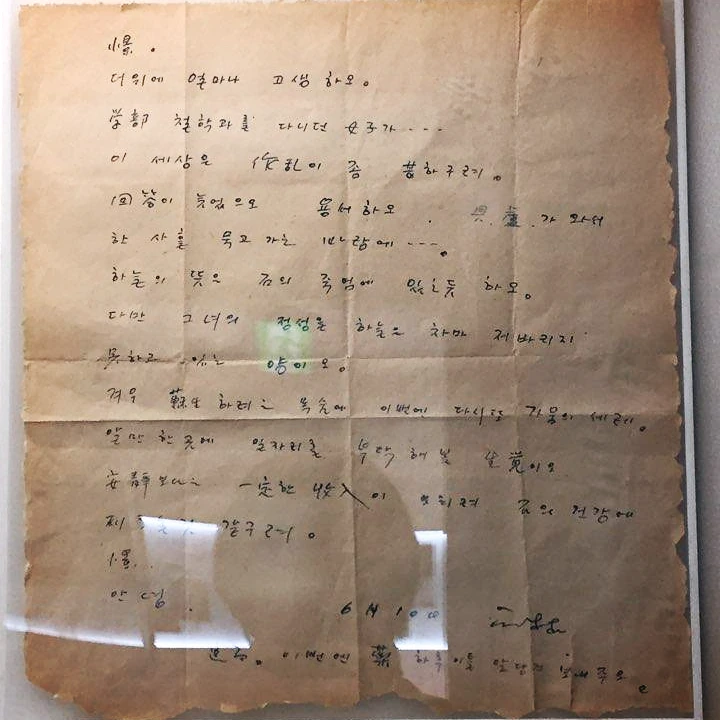 憬。
더위에 얼마나 고생 하오。
学部 철학과를 다니던 女子가---
이 세상은 작난이 좀 하구려。
回答이 늦었으오 용서하오. 가 와서
한 사흘 묵고 가는 바람에---。
하늘의 뜻은 김의 죽엄에 있는듯 하오。
다만 그녀의 정성을 하늘은 차마 저바리지
못하고 있는 양이오。
겨우 蘇生하려는 목숨에 이번엔 다시또 가뭄의 세례。
알만한곳에 일자리를 부탁 해볼 生覚이오
安静보다는 一定한 收入이 오히려 김의 건강에
갈구려。
憬.
안녕.
6月10日
이번엔 薬 하루이틀 앞당겨 보내주오。